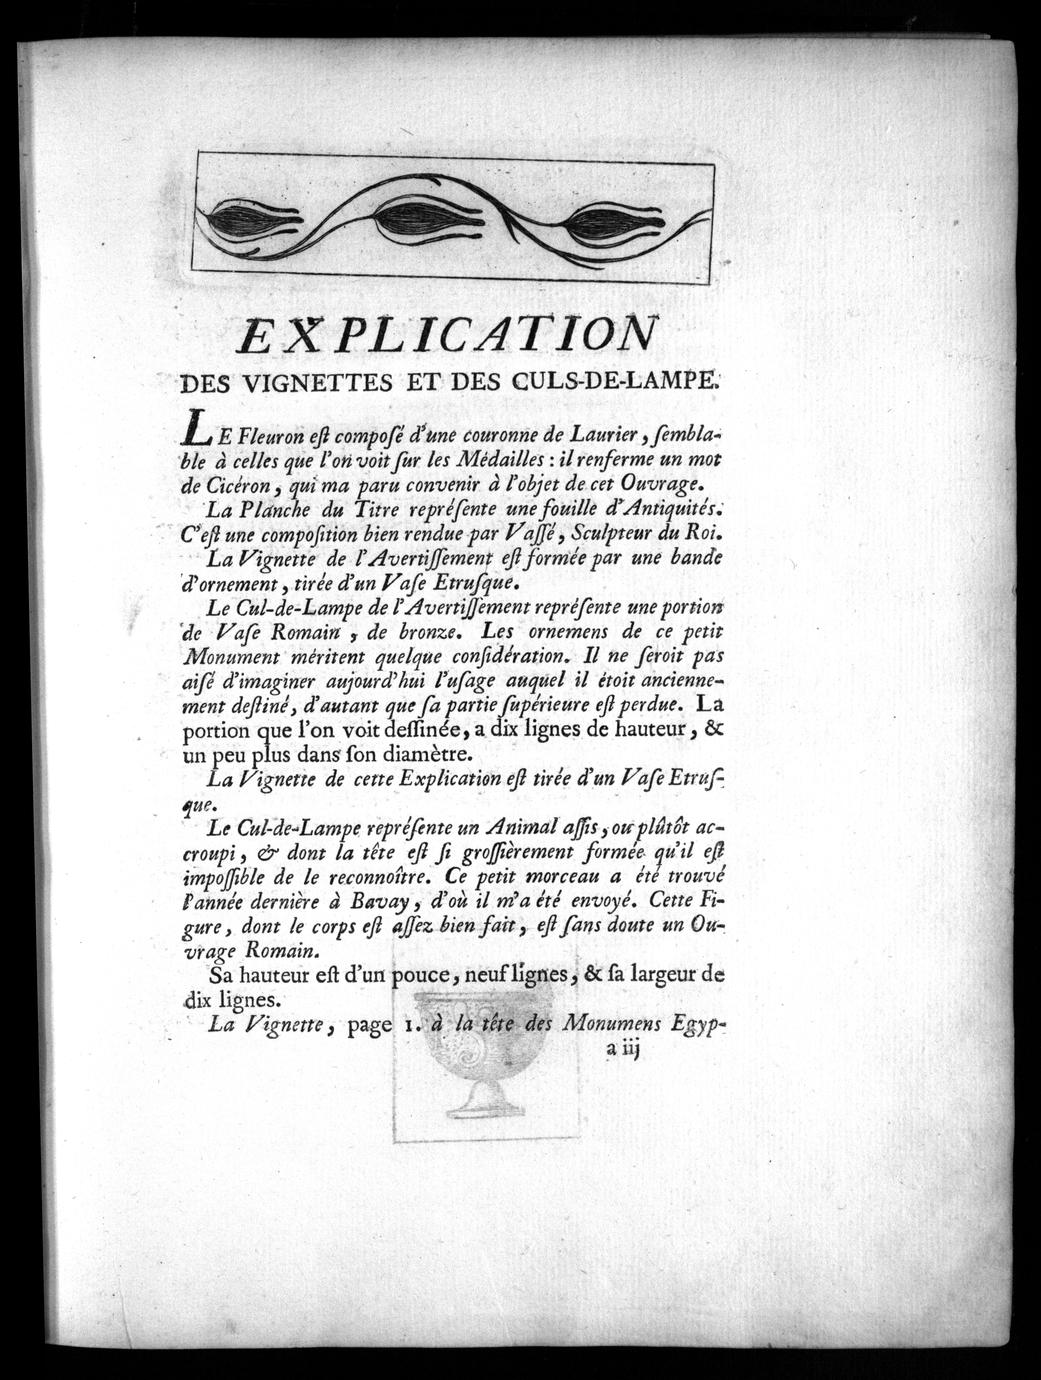 EXPLICATION
DES VIGNETTES ET DES CULS-DE-LAMPE.
LE Fleuron eſt compoſé d'une couronne de Laurier, ſembla-
ble à celles que l'on voit ſur les Médailles : il renferme un mot
de Cicéron, qui ma paru convenir à l'objet de cet Ouvrage.
La Planche du Titre repréſente une fouille d'Antiquités.
C'eſt une compoſition bien rendue par Vaſſé, Sculpteur du Roi.
La Vignette de l'Avertiſſement eſt formée par une bande
d'ornement, tirée d'un Vaſe Etruſque.
Le Cul-de-Lampe de l'Avertiſſement repréſente une portion
de Vaſe Romain, de bronze. Les ornemens de ce petit
Monument méritent quelque conſidération. Il ne ſeroit pas
aiſé d'imaginer aujourd'hui l'uſage auquel il étoit ancienne-
ment deſtiné, d'autant que ſa partie ſupérieure eſt perdue. La
portion que l'on voit deſſinée, a dix lignes de hauteur, &
un peu plus dans ſon diamètre.
La Vignette de cette Explication eſt tirée d'un Vaſe Etruſ-
que.
Le Cul-de-Lampe repréſente un Animal aſſis, ou plûtôt ac-
croupi, & dont la tête eſt ſi groſſièrement formée qu'il eſt
impoſſible de le reconnoître. Ce petit morceau a été trouvé
l'année dernière à Bavay, d'où il m'a été envoyé. Cette Fi-
gure, dont le corps eſt aſſez bien fait, eſt ſans doute un Ou-
vrage Romain.
Sa hauteur eſt d'un pouce, neuf lignes, & ſa largeur de
dix lignes.
La Vignette, page 1. à la tête des Monumens Egyp-
a iij